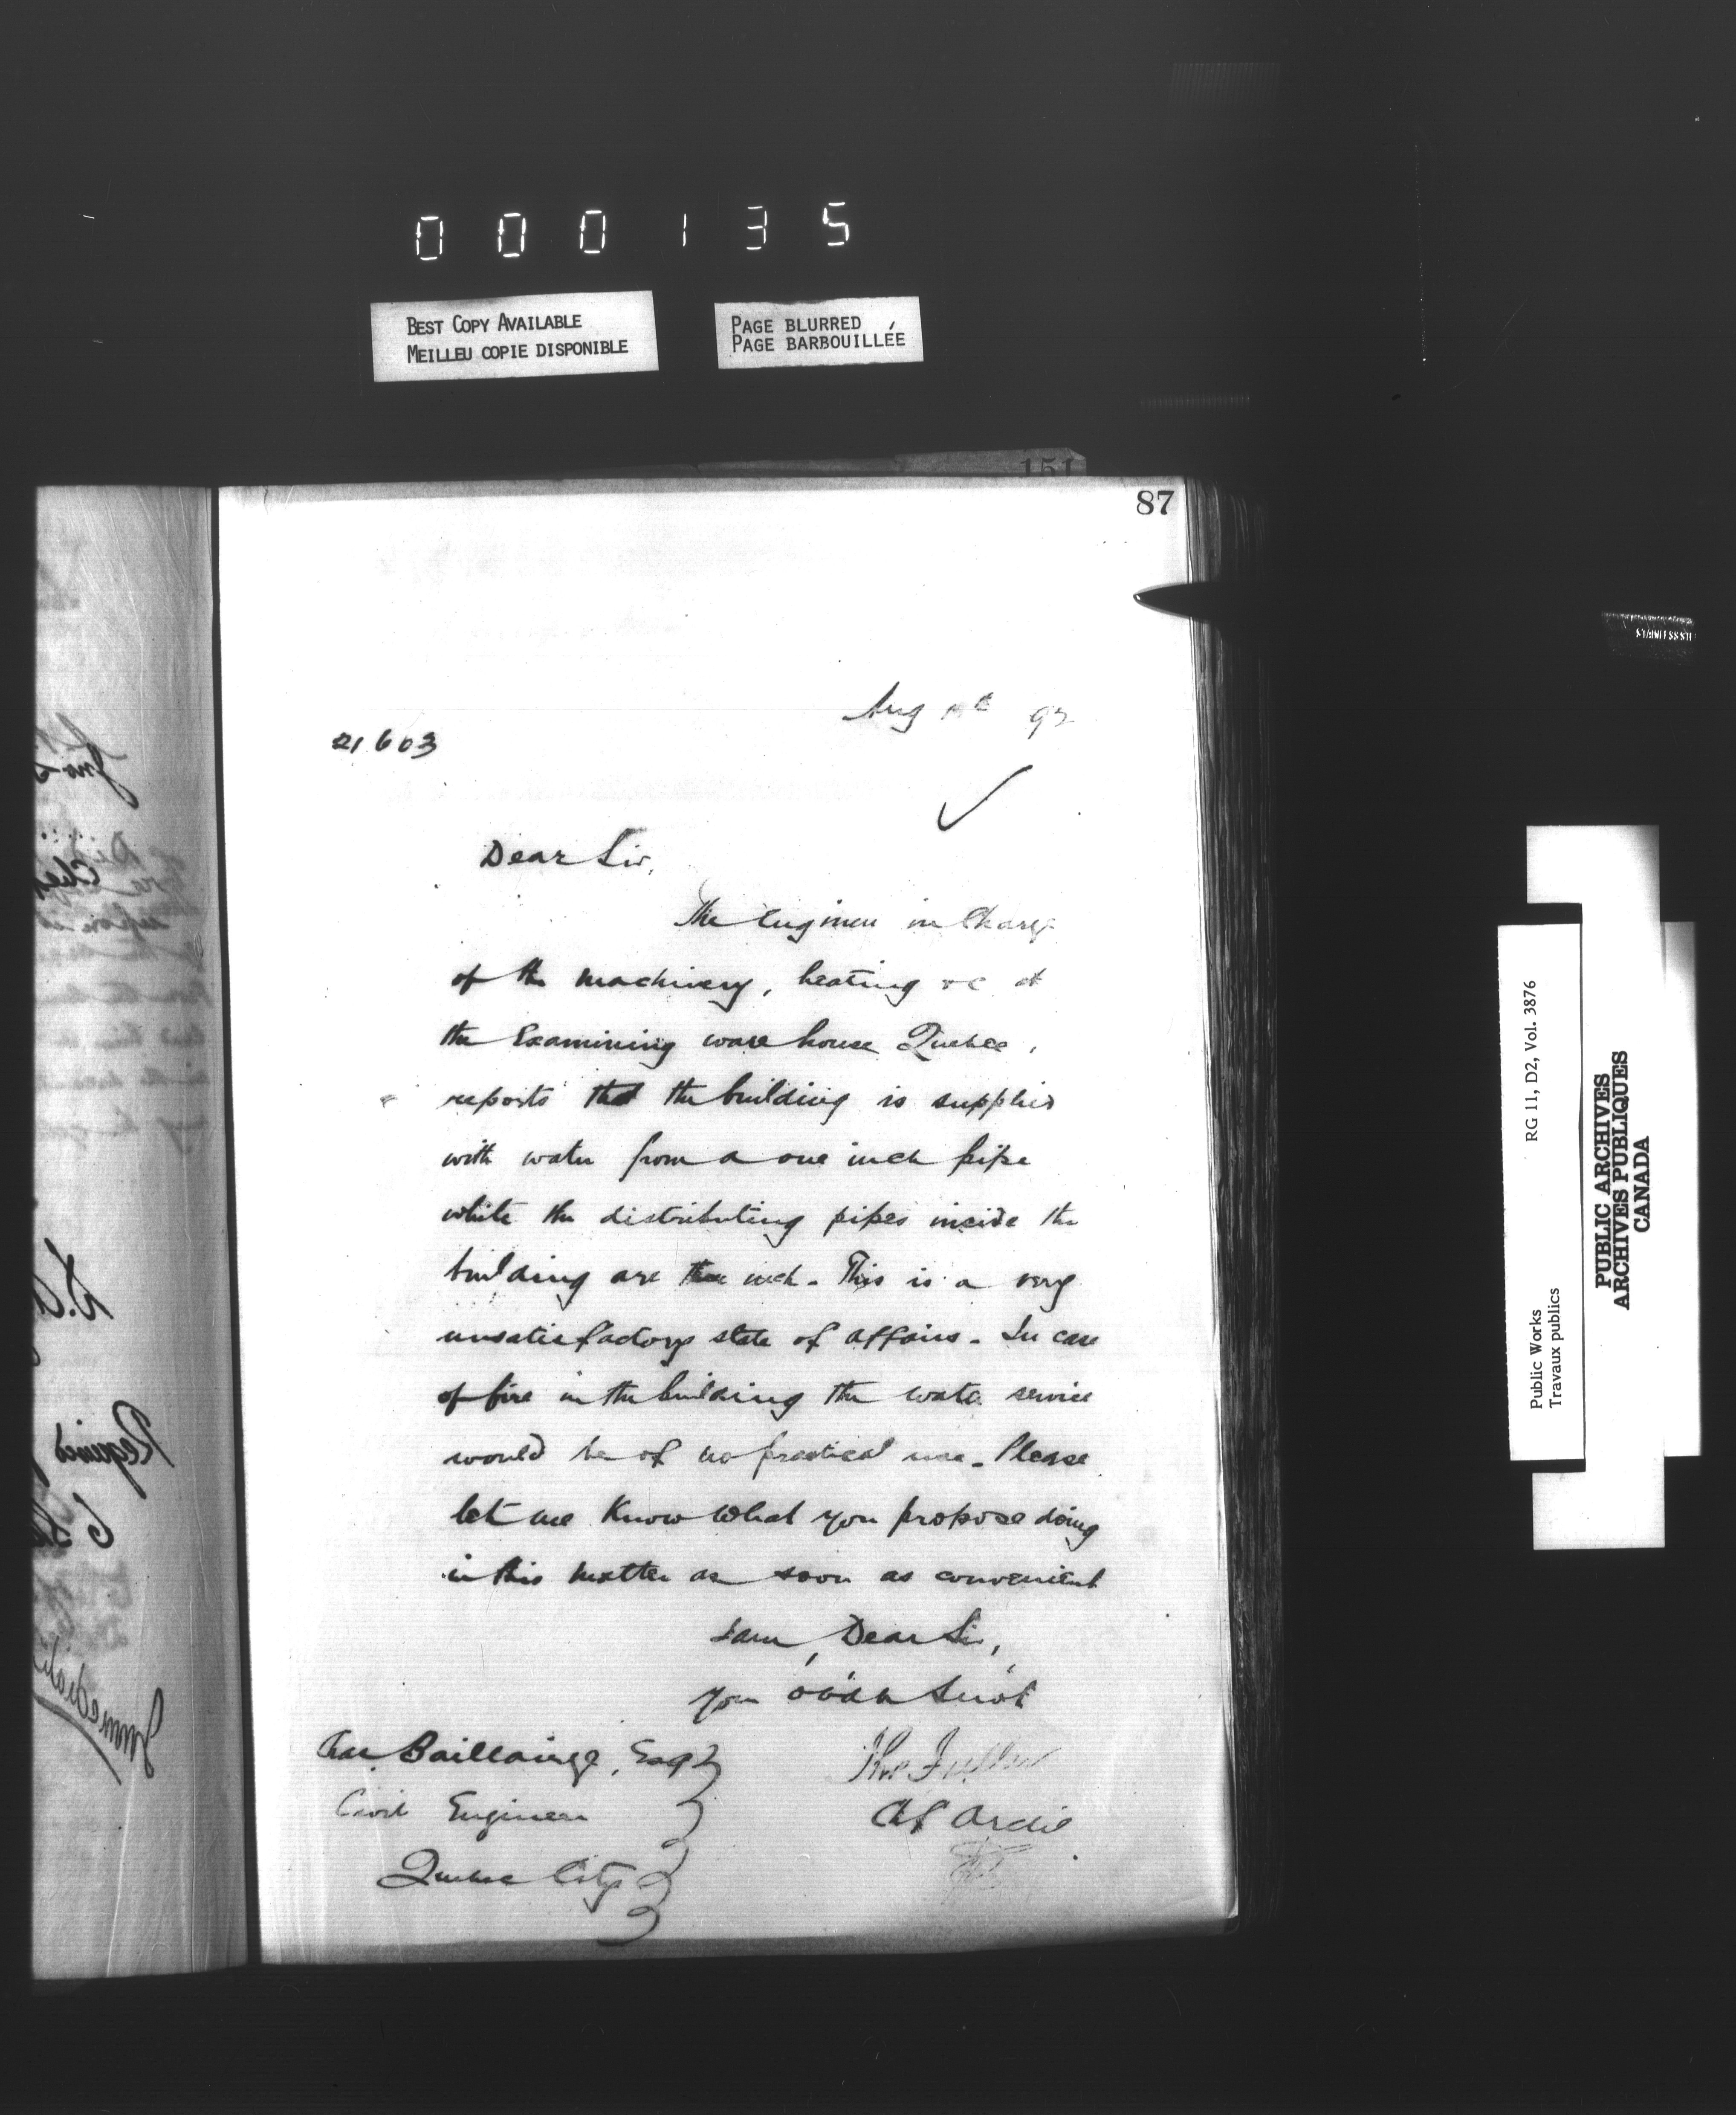 000135
BEST COPY AVAILABLE
MEILLEU COPIE DISPONIBLE
PAGE BLURRED
PAGE BARBOUILLÉE
151
87
Aug 93
21603
Dear Sir,
The Engineer in Charge
of the machinery, heating &c at
the Examining warehouse Quebec,
reports that the building is supplied
with water from a one inch pipe
while the distributing pipes inside the
building are inch. This is a very
unsatisfactory state of affairs. In case
of fire in the building the water service
would be of no practical use. Please
let me know what you propose doing
in this matter as soon as convenient
I am, Dear Sir,
Your obdt Servt
Chas. Baillairgé, Esq
Thos Fuller
Civil Engineer
Ch Archt
Quebec City
RG 11, D2, Vol. 3876
Public Works
Travaux publics
PUBLIC ARCHIVES
ARCHIVES PUBLIQUES
CANADA